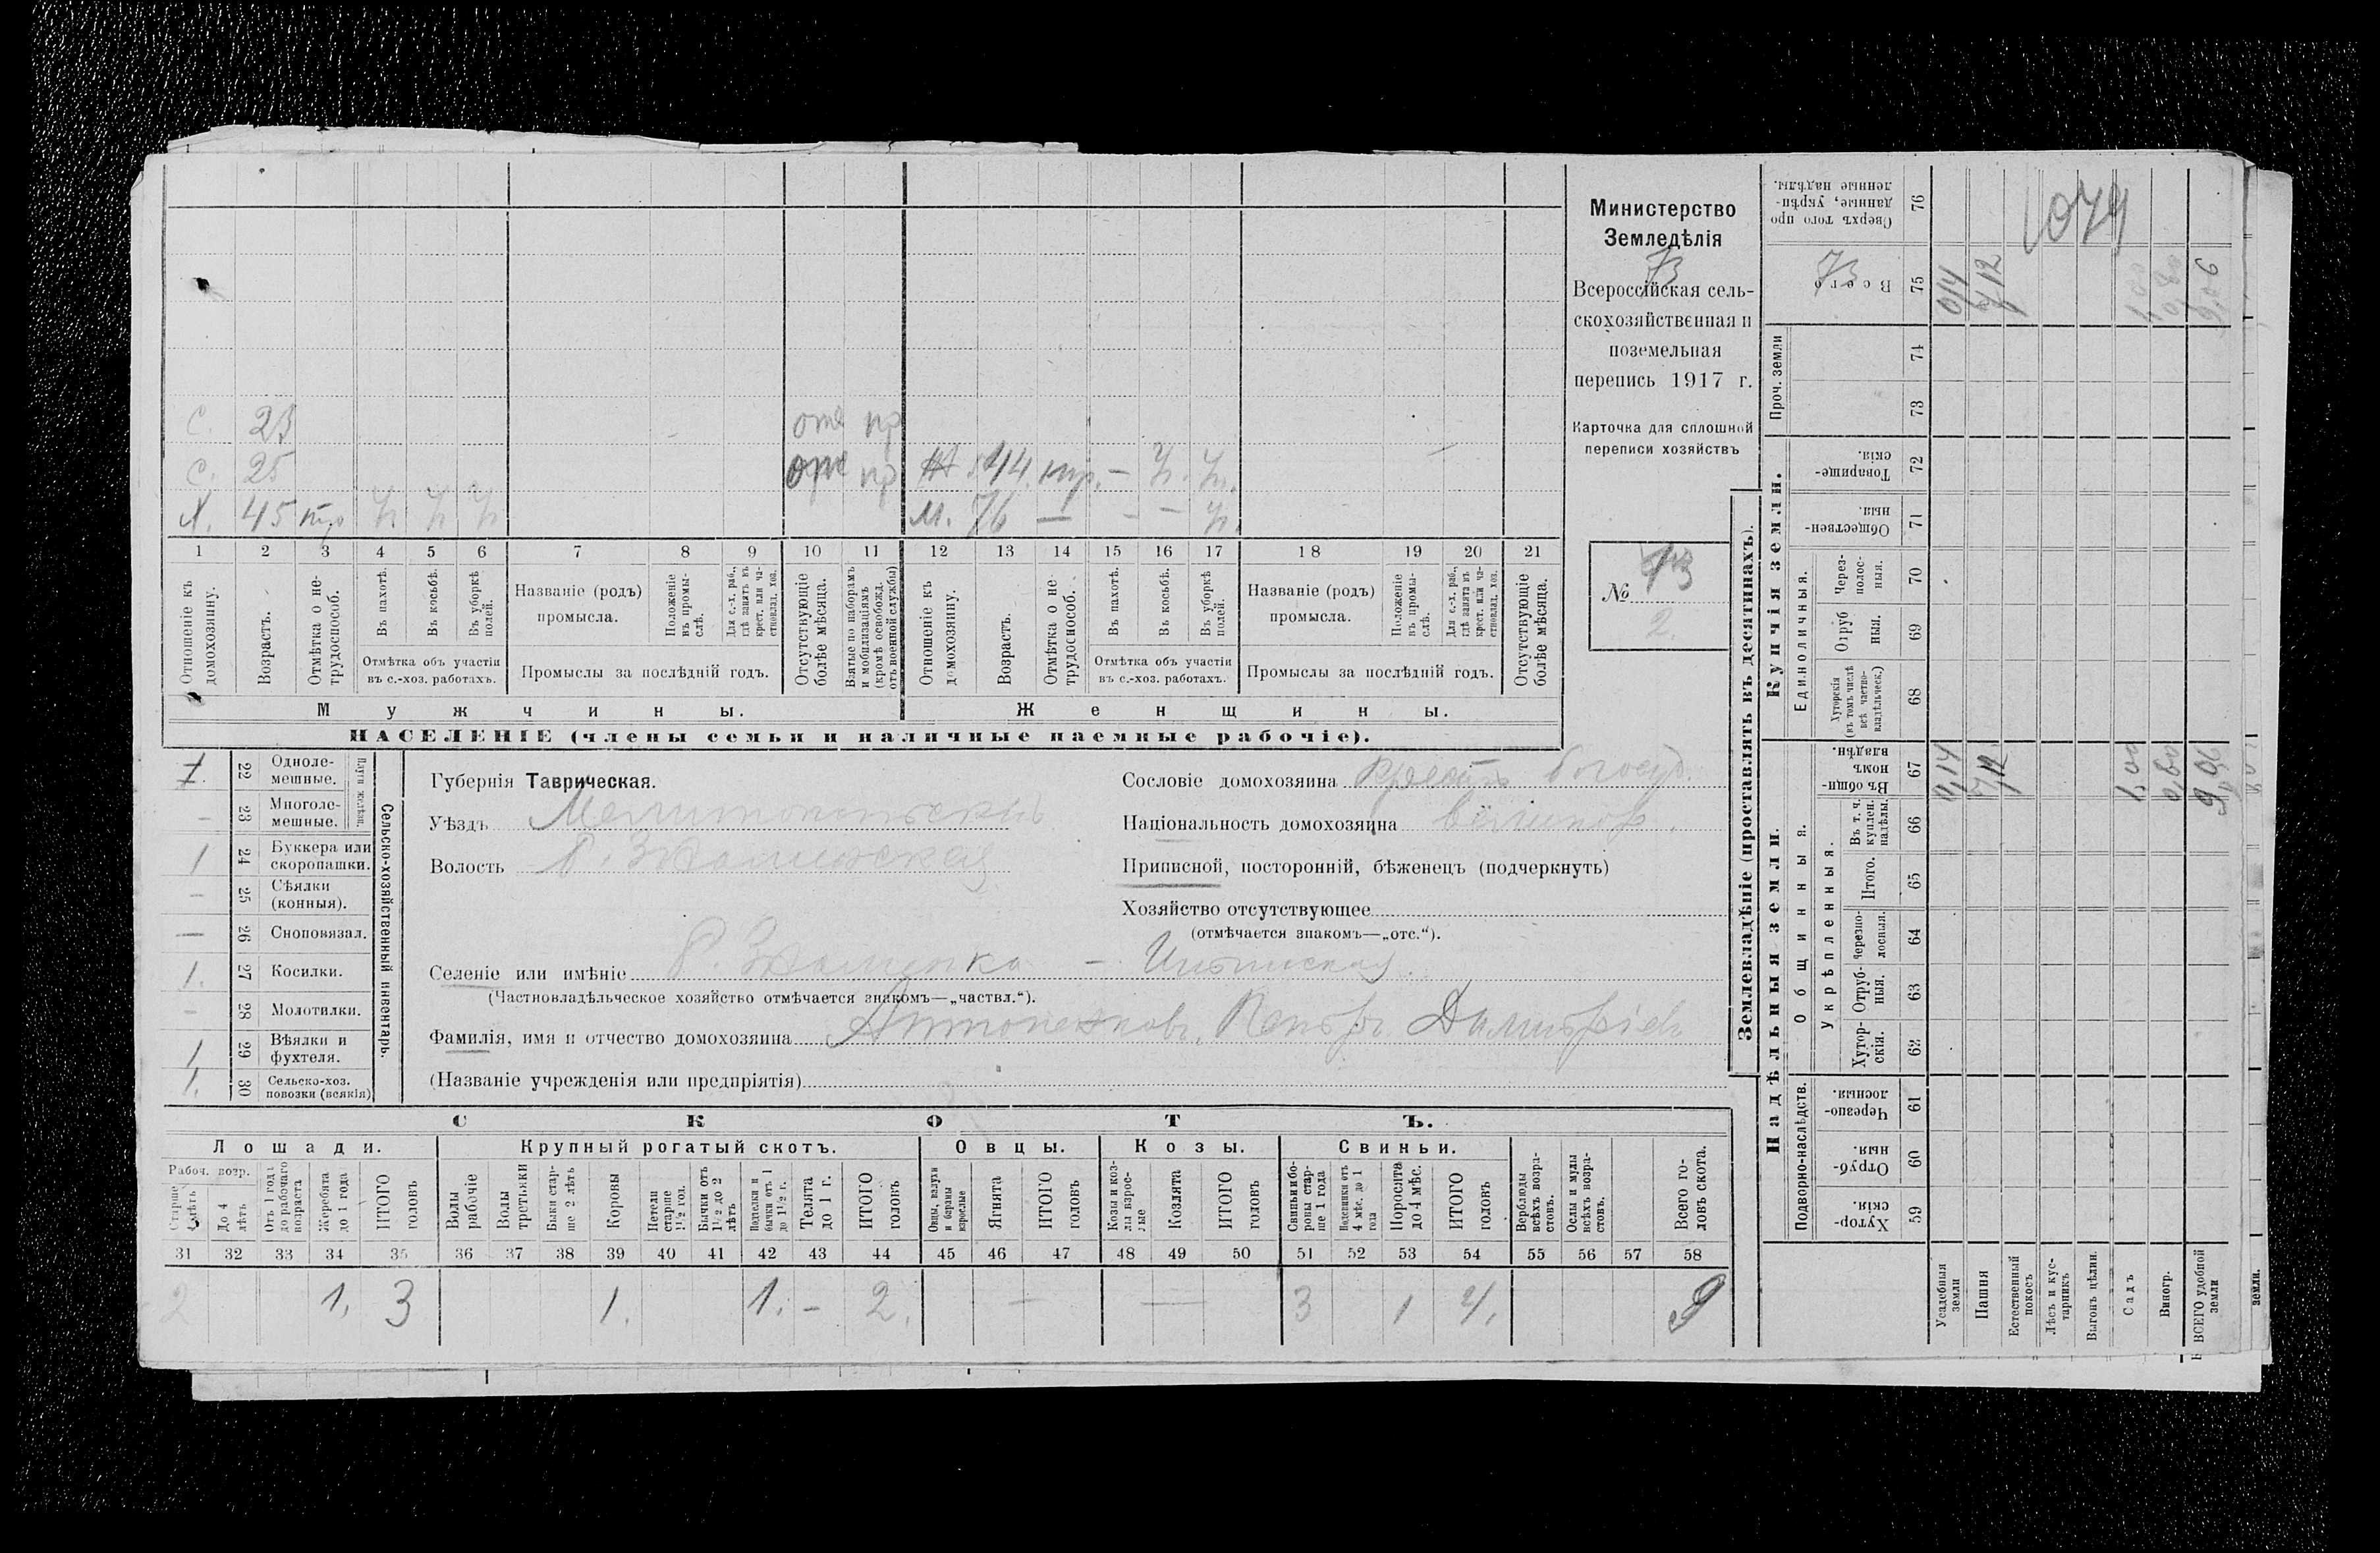 Министерство
Земледѣлія
73
Всероссійская сель-
скохозяйственная и
поземельная
перепись 1917 г.
Карточка для сплошной
переписи хозяйствъ
№ 73
2.
с. 23 отс пр
с. 25 отс пр 44 – ч. ч.
Х. 45 ч ч ч М. 76 — - – ч.
1 2 3 4 5 6 7 8 9 10 11 12 13 14 15 16 17 18 19 20 21
Отношеніе къ домохозяину.
Возрастъ.
Отмѣтка о не-трудоспособ.
Въ пахотѣ.
Въ косьбѣ.
Въ уборкѣ полей.
Отмѣтка объ участіи
въ с.-хоз. работахъ.
Названіе (родъ)
промысла.
Положеніе въ промы-слѣ.
Для с.-х. раб., гдѣ занятъ въ крест. или ча-стновлад. хоз.
Промыслы за послѣдній годъ.
Отсутствующіе болѣе мѣсяца.
Взятые по наборамъ и мобилизаціямъ (кромѣ освобожд. отъ военной службы)
Отношеніе къ домохозяину.
Возрастъ.
Отмѣтка о не-трудоспособ.
Въ пахотѣ.
Въ косьбѣ.
Въ уборкѣ полей.
Отмѣтка объ участіи
въ с.-хоз. работахъ.
Названіе (родъ)
промысла.
Положеніе въ промы-слѣ.
Для с.-х. раб., гдѣ занята въ крест. или ча-стновлад. хоз.
Промыслы за послѣдній годъ.
Отсутствующіе болѣе мѣсяца.
Мужчины.
Женщины.
НАСЕЛЕНІЕ (члены семьи и наличные наемные рабочіе).
1. 22 Одноле-мешные.
– 23 Многоле-мешные.
Плуги желѣзн.
1 24 Буккера или скоропашки.
– 25 Сѣялки (конныя).
— 26 Сноповязал.
1. 27 Косилки.
– 28 Молотилки.
1 29 Вѣялки и фухтеля.
1. 30 Сельско-хоз. повозки (всякія)
Сельско-хозяйственный инвентарь.
Губернія Таврическая.
Уѣздъ Мелитопольскій
Волость
Селеніе или имѣніе
(Частновладѣльческое хозяйство отмѣчается знакомъ—„частвл.“).
Фамилія, имя и отчество домохозяина
(Названіе учрежденія или предпріятія)
Сословіе домохозяина
Національность домохозяина великор.
Приписной, посторонній, бѣженецъ (подчеркнуть)
Хозяйство отсутствующее
(отмѣчается знакомъ—„отс.“).
СКОТЪ.
Лошади.
Крупный рогатый скотъ.
Овцы.
Козы.
Свиньи.
Рабоч. возр.
Старше 4 лѣтъ
До 4 лѣтъ
Отъ 1 года до рабочаго возраста
Жеребята до 1 года
ИТОГО головъ
Волы рабочіе
Волы третьяки
Быки стар-ше 2 лѣтъ
Коровы
Нетели старше 1½ год.
Бычки отъ 1½ до 2 лѣтъ
Подтелки и бычки отъ 1 до 1½ г.
Телята до 1 г.
ИТОГО головъ
Овцы, валухи и бараны взрослые
Ягнята
ИТОГО головъ
Козы и коз-лы взрос-лые
Козлята
ИТОГО головъ
Свиньи и бо-ровы стар-ше 1 года
Подсвинки отъ 4 мѣс. до 1 года
Поросята до 4 мѣс.
ИТОГО головъ
Верблюды всѣхъ возра-стовъ.
Ослы и мулы всѣхъ возра-стовъ.
Всего го-ловъ скота.
31 32 33 34 35 36 37 38 39 40 41 42 43 44 45 46 47 48 49 50 51 52 53 54 55 56 57 58
2 1. 3 1. 1. – 2. — — 3 1 4. 9
Землевладѣніе (проставлять въ десятинахъ).
Надѣльныя земли.
Купчія земли.
Проч. земли
Подворно-наслѣдств.
Общинныя.
Укрѣпленныя.
Единоличныя.
Сверхъ того про данные, укрѣп-ленные надѣлы. 76
1079
73
Всего 75 0,14 7,12 1,00 0,80 9,06
74
73
Товарище-скія. 72
Обществен-ныя. 71
Через-полос-ныя. 70
Отруб ныя. 69
Хуторскія (въ томъ числѣ всѣ частно-владѣльческ.) 68
Въ общин-номъ владѣн. 67 0,14 7,12 1,00 0,80 9,06
Въ т. ч. куплен. надѣлы. 66
Итого. 65
Черезпо-лосныя. 64
Отруб-ныя. 63
Хутор-скія. 62
Черезпо-лосныя. 61
Отруб-ныя. 60
Хутор-скія. 59
Усадебныя земли
Пашня
Естественный покосъ
Лѣсъ и кус-тарникъ
Выгонъ цѣлин.
Садъ
Виногр.
ВСЕГО удобной земли
земли.